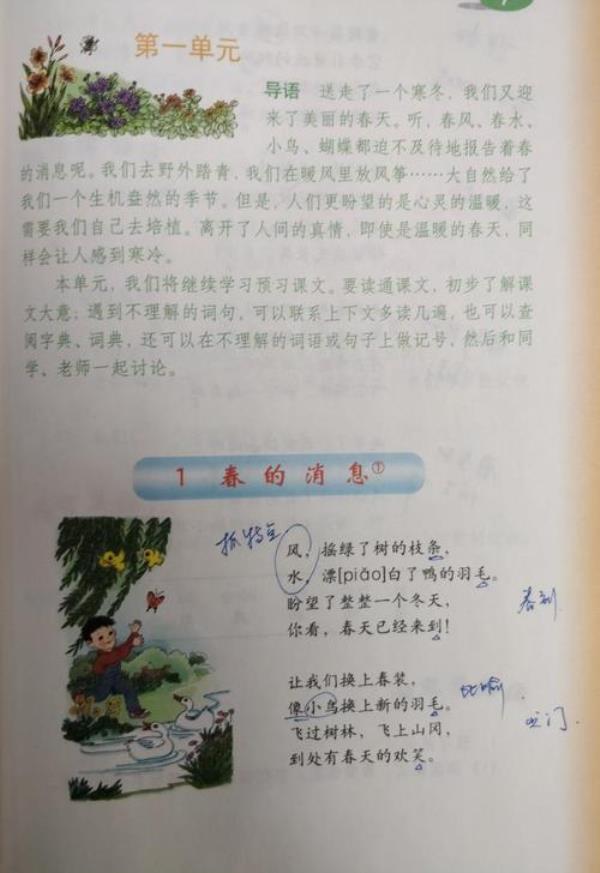 第一单元
导语 送走了一个寒冬，我们又迎
来了美丽的春天。听，春风、春水、
小鸟、蝴蝶都迫不及待地报告着春
的消息呢。我们去野外踏青，我们在暖风里放风筝……大自然给了
我们一个生机盎然的季节。但是，人们更盼望的是心灵的温暖，这
需要我们自己去培植。离开了人间的真情，即使是温暖的春天，同
样会让人感到寒冷。
本单元，我们将继续学习预习课文。要读通课文，初步了解课
文大意；遇到不理解的词句，可以联系上下文多读几遍，也可以查
阅字典、词典，还可以在不理解的词语或句子上做记号，然后和同
学、老师一起讨论。
1 春的消息①
抓特点
风，摇绿了树的枝条，
水，漂[piǎo]白了鸭的羽毛。
盼望了整整一个冬天，
春到
你看，春天已经来到！
让我们换上春装，
像小鸟换上新的羽毛。
比喻
飞过树林，飞上山冈，
到处有春天的欢笑。